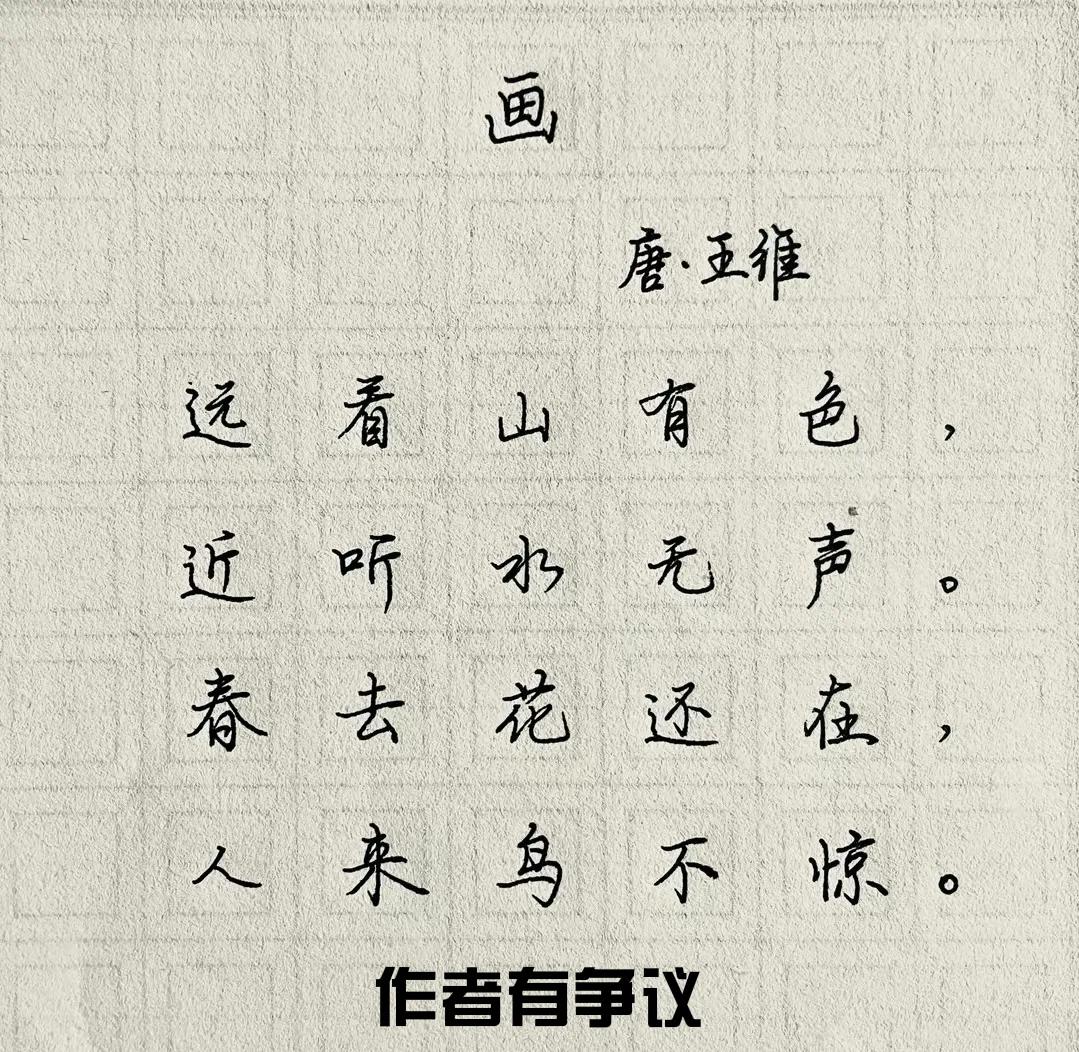 画
唐·王维
远看山有色，
近听水无声。
春去花还在，
人来鸟不惊。
作者有争议